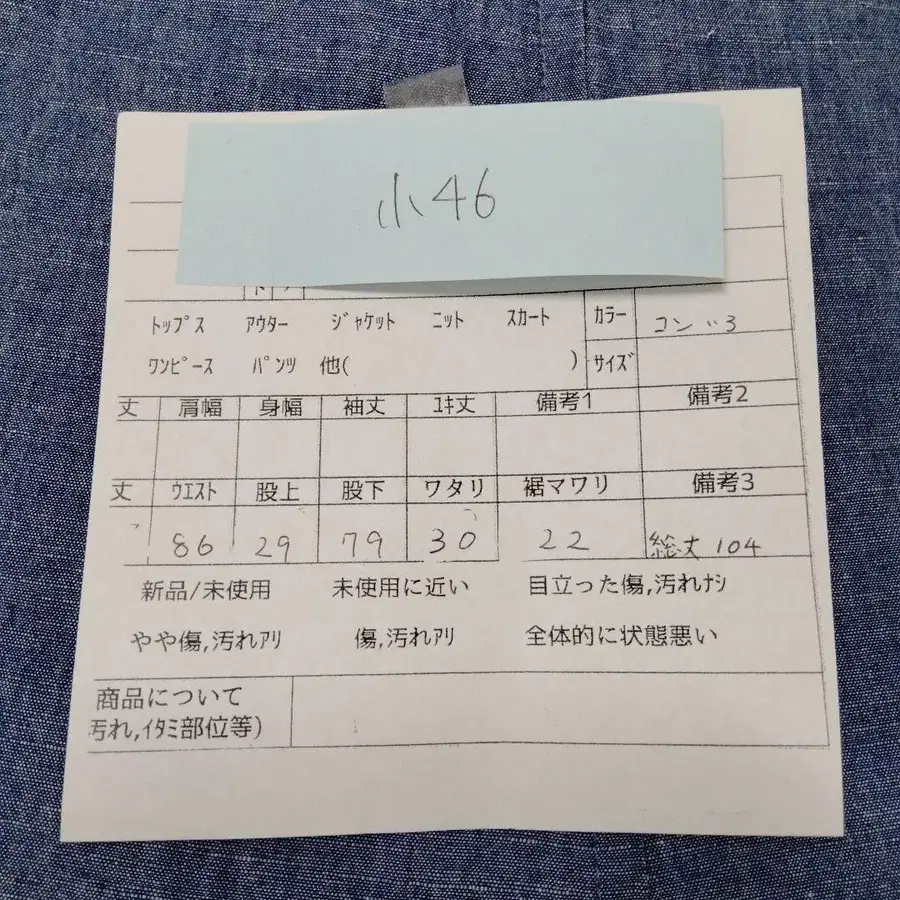 小46
トップス アウター ジャケット ニット スカート カラー コン
ワンピース パンツ 他( ) サイズ
丈 肩幅 身幅 袖丈 ユキ丈 備考1 備考2
丈 ウエスト 股上 股下 ワタリ 裾マワリ 備考3
86 29 79 30 22 総丈 104
新品/未使用 未使用に近い 目立った傷,汚れナシ
やや傷,汚れアリ 傷,汚れアリ 全体的に状態悪い
商品について
汚れ,イタミ部位等)